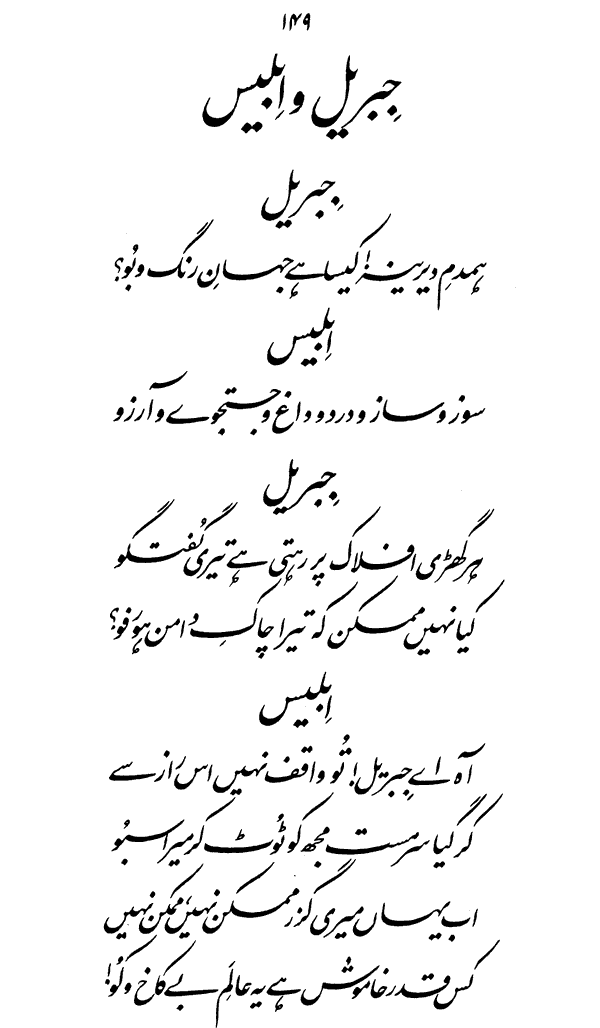 ۱۴۹
جِبریل و اِبلیس
جِبریل
ہمدمِ دیرینہ! کیسا ہے جہانِ رنگ و بُو؟
اِبلیس
سوز و ساز و درد و داغ و جستجوے و آرزو
جِبریل
ہر گھڑی افلاک پر رہتی ہے تیری گُفتگو
کیا نہیں ممکن کہ تیرا چاکِ دامن ہو رفو؟
اِبلیس
آہ اے جِبریل! تُو واقف نہیں اس راز سے
کر گیا سرمست مجھ کو ٹُوٹ کر میرا سبُو
اب یہاں میری گزر ممکن نہیں، ممکن نہیں
کس قدر خاموش ہے یہ عالَمِ بے کاخ و کُو!